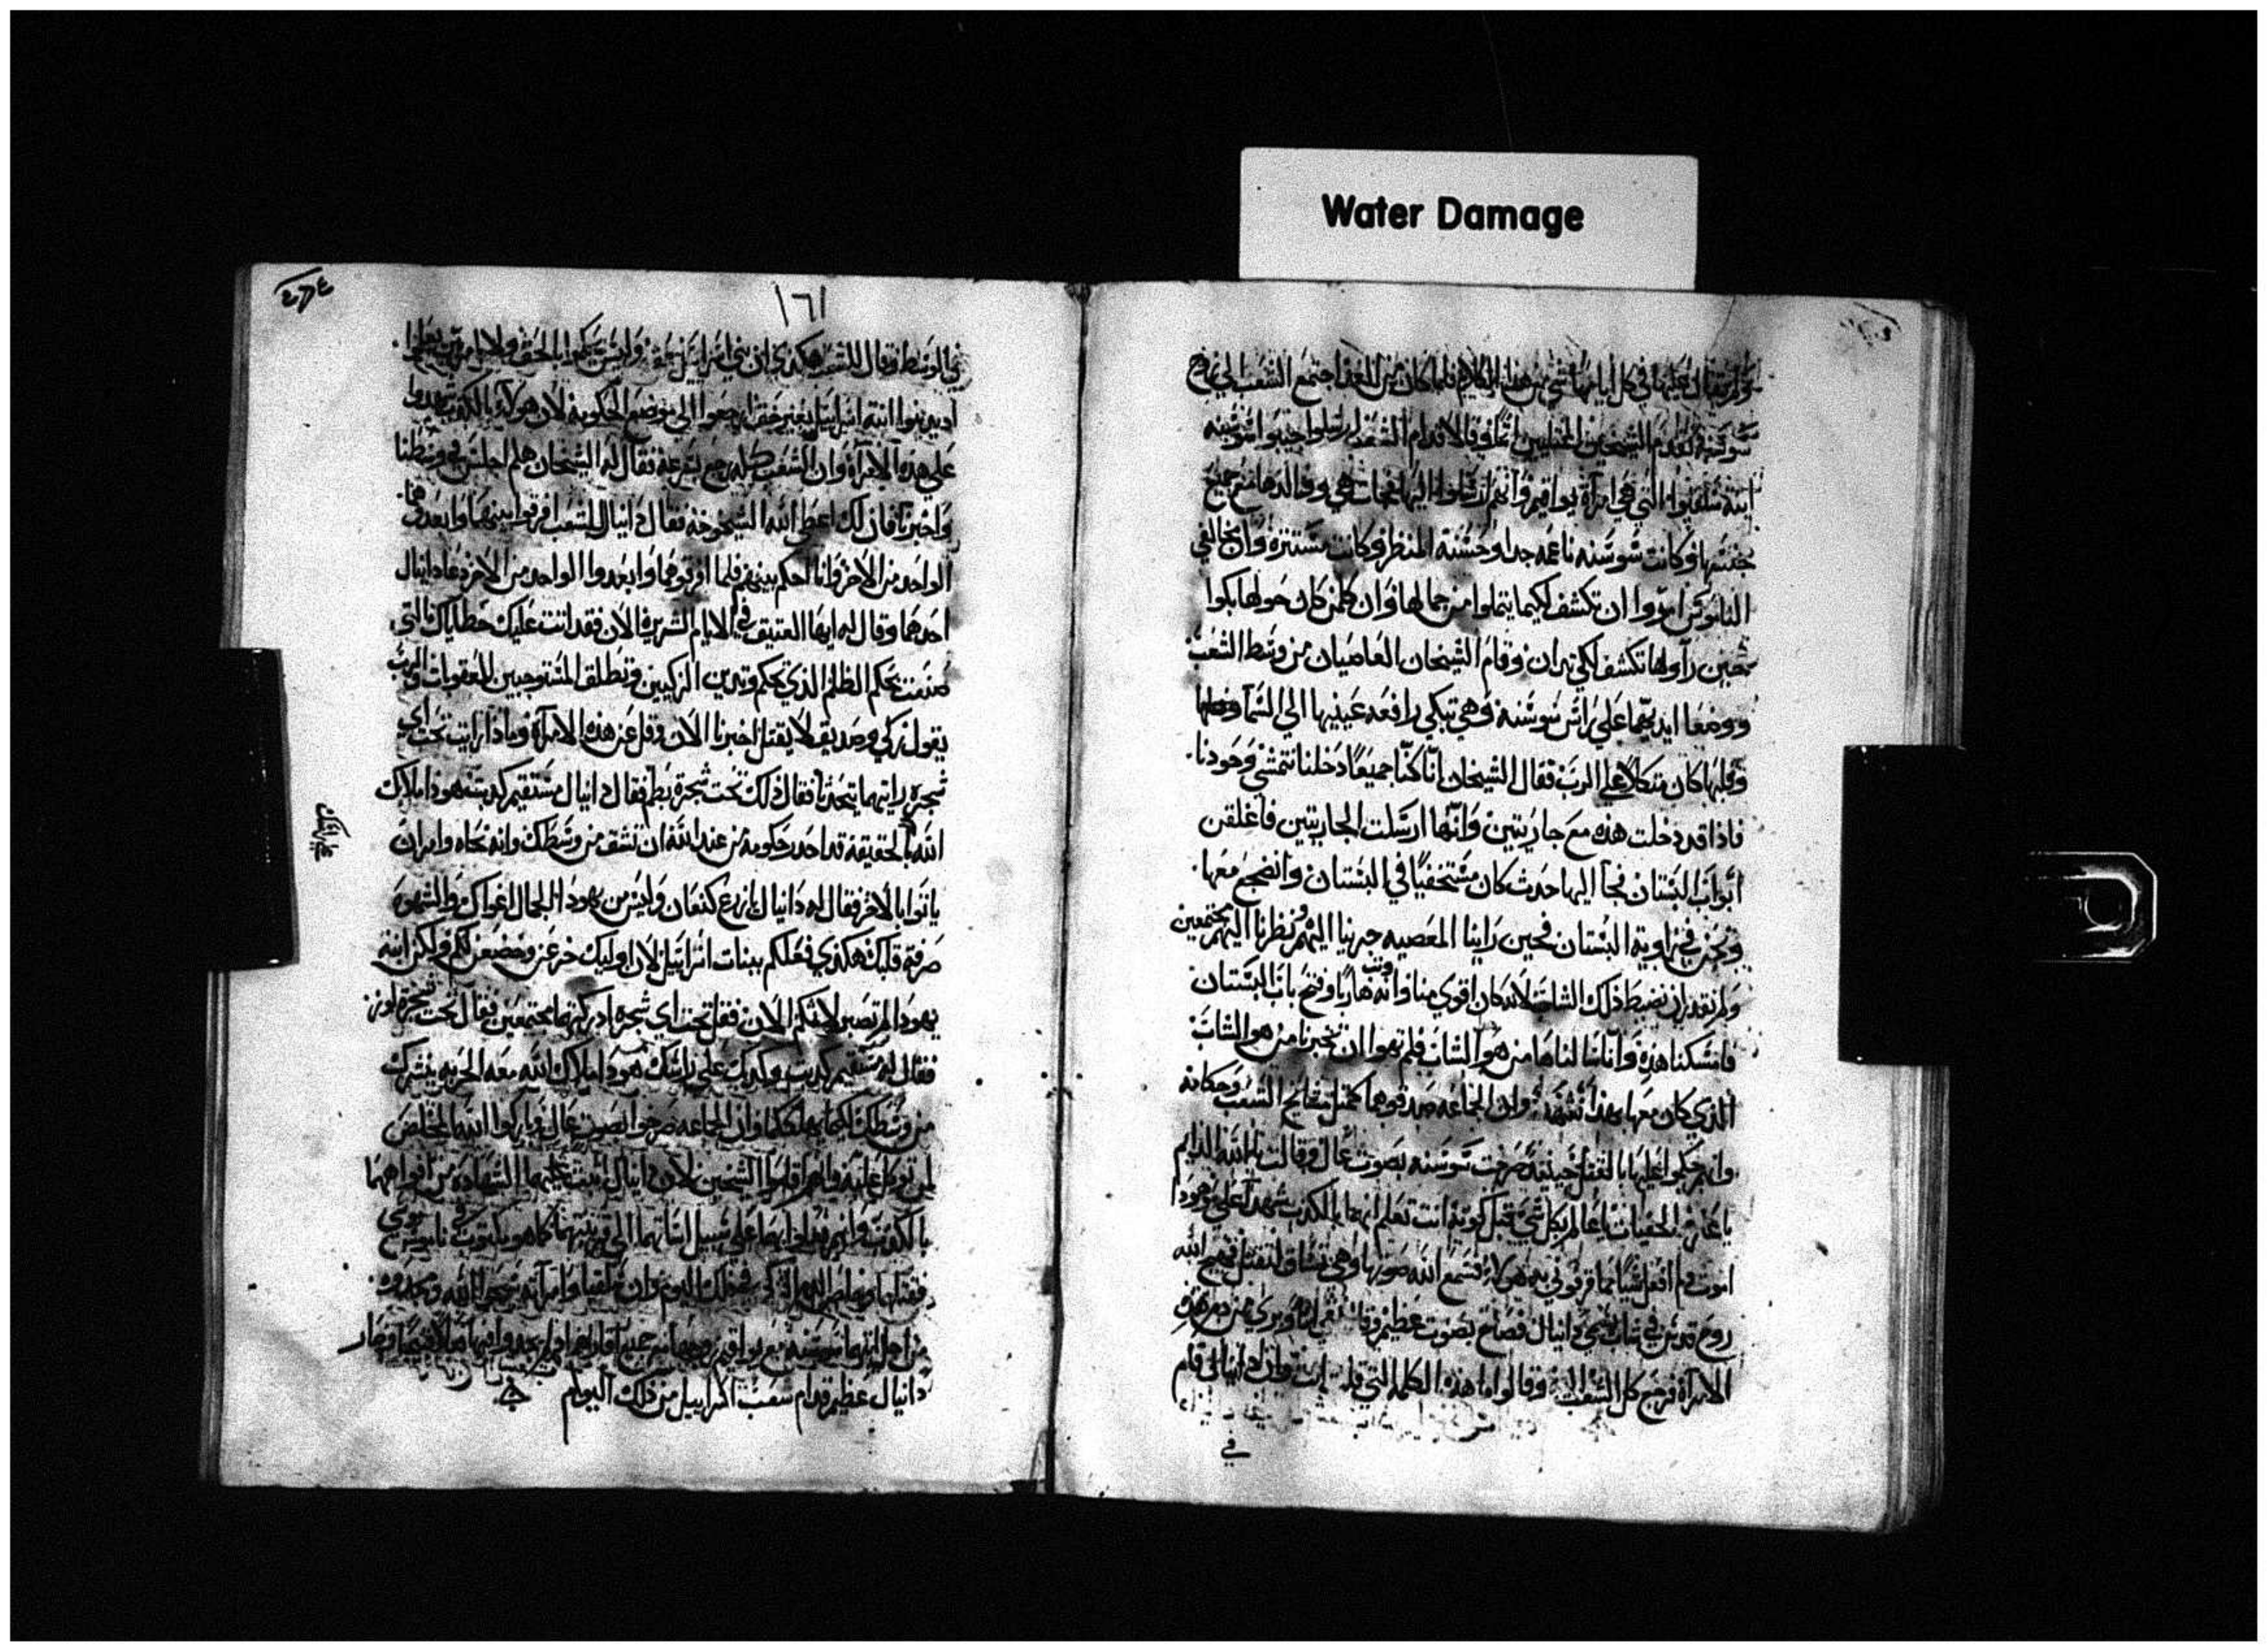 Water Damage
ولم يقال عليها في كل ايامها شي من هذا الكلام فلما كان من الغد اجتمع الشعب الي زوج
سوسنه فتقدم الشيخان وقالا قدام الشعب ارسلوا جيبوا سوسنه
ابنة التي هي امرآة يواقيم وانهم ارسلوا اليها فجات هي ووالدها مع جميع
جنسها وكانت سوسنه ناعمه جدا وحسنة المنظر وكانت مستتره وان مخالفي
الناموس امروا ان تكشف لكيما يتملوا من جمالها وان كلمن كان حولها بكوا
حين رآوها تكشف لكي تهان وقام الشيخان العاصيان من وسط الشعب
ووضعا ايديهما علي راس سوسنه وهي تبكي رافعه عينيها الي السما
وقلبها كان متكلا علي الرب فقال الشيخان انا كنا جميعا دخلنا نتمشي وحودنا
فاذا قد دخلت هذه مع جاريتين وانها ارسلت الجاريتين فاغلقن
ابواب البستان فجآ اليها حدث كان مستخفيا في البستان وانضجع معها
ونحن في زاوية البستان فحين راينا المعصيه جرينا اليهم ونظرنا اليهم مجتمعين
ولم نقدر ان نضبط ذلك الشاب لانه كان اقوي منا وانه وثب هاربا وفتح باب البستان
فامسكنا هذه وآنا سالناها من هو الشاب فلم تهوا ان تخبرنا من هو الشاب
الذي كان معها بهذا نشهد وان الجماعه صدقوهما كمثل مشايخ الشعب وحكامه
وانهم حكموا عليها بالقتل حينيذ صرخت سوسنه بصوت عال وقالت يا الله الدايم
يا عارف الخفيات يا عالم بكل شي قبل كونه انت تعلم انهما بالكذب شهدا علي وهوذا
اموت ولم افعل شيا مما قرفوني به هولاء فسمع الله صوتها وهي تساق لتقتل فهيج الله
روح قدس في شاب يسمي دانيال فصاح بصوت عظيم وقال نقي انا وبري من دم هذه
الامرآة فرجع كل الشعب اليه وقالوا ما هذه الكلمه التي قلت انت وان دانيال قام
في
١٦١
في الوسط وقال للشعب هكذي ان بني اسراييل وليس بحكم الحق ولا
ادينوا ابنة اسراييل بغير حق ارجعوا الي موضع الحكومه لان هولاء بالكذب شهدوا
علي هذه الامرآة وان الشعب كله رجع بسرعه فقال له الشيخان هلم اجلس في وسطنا
واخبرنا فان لك اعطي الله الشيخوخه فقال دانيال للشعب افرقوا بينهما وابعدوهما
الواحد من الاخر وانا احكم بينهم فلما افرقوهما وابعدوا الواحد من الاخر دعا دانيال
احدهما وقال له ايها العتيق في الايام الشريره الان فقد اتت عليك خطاياك التي
صنعت بحكم الظلم الذي تحكم وتدين الزكيين وتطلق المستوجبين للعقوبات والرب
يقول زكي وصديق لا يقتل اخبرنا الان وقل عن هذه الامرآة وماذا رايت تحت اي
شجره رايتهما يتحدثا فقال ذلك تحت شجرة بطم فقال دانيال مستقيم كذبت هوذا ملاك
الله بالحقيقه قد اخذ حكومه من عند الله ان تشق من وسطك وانه نحاه وامر ان
ياتوا بالاخر فقال له دانيال يا زرع كنعان وليس من يهودا الجمال اغواك والشهوه
صرفة قلبك هكذي فعلكم ببنات اسراييل لان اوليك خزعن وخضعن لكم ولكن ابنة
يهودا لم تصبر لاثمكم الان فقل تحت اي شجره ادركتهما مجتمعين فقال تحت شجرة لوز
فقال له مستقيم كذبت وكذبك علي راسك هوذا ملاك الله معه الحربه ينشرك
من وسطك لكيما يهلككما وان الجماعه صرخوا بصوت عال وباركوا الله المخلص
لمن توكل عليه وانهم اقاموا الشيخين لان دانيال اثبت عليهما الشهاده من افواههما
بالكذب وانهم فعلوا بهما علي سبيل اساتهما الي قريبتهما كما هو مكتوب في ناموس موسي
فقتلوهما وخلص الدم الزكي في ذلك اليوم وان حلقيا وامرآته سبحوا الله
من اجل ابنتهما سوسنه مع يواقيم زوجها مع جميع اقاربها
دانيال عظيم قدام شعب اسراييل من ذلك اليوم